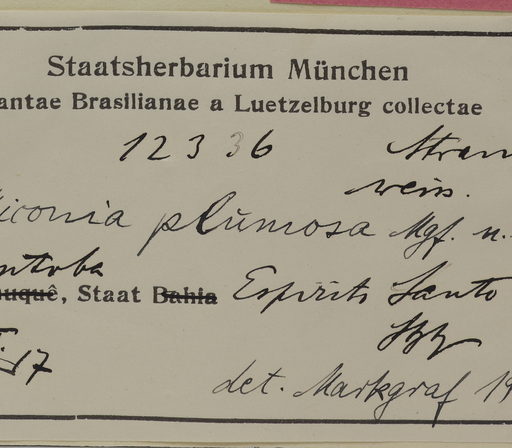 Staatsherbarium München
antae Brasilianae a Luetzelburg collectae
12336 Stran
weiss.
iconia plumosa Mgf. n.
uquê, Staat Bahia Espirito Santo
17
det. Markgraf 19